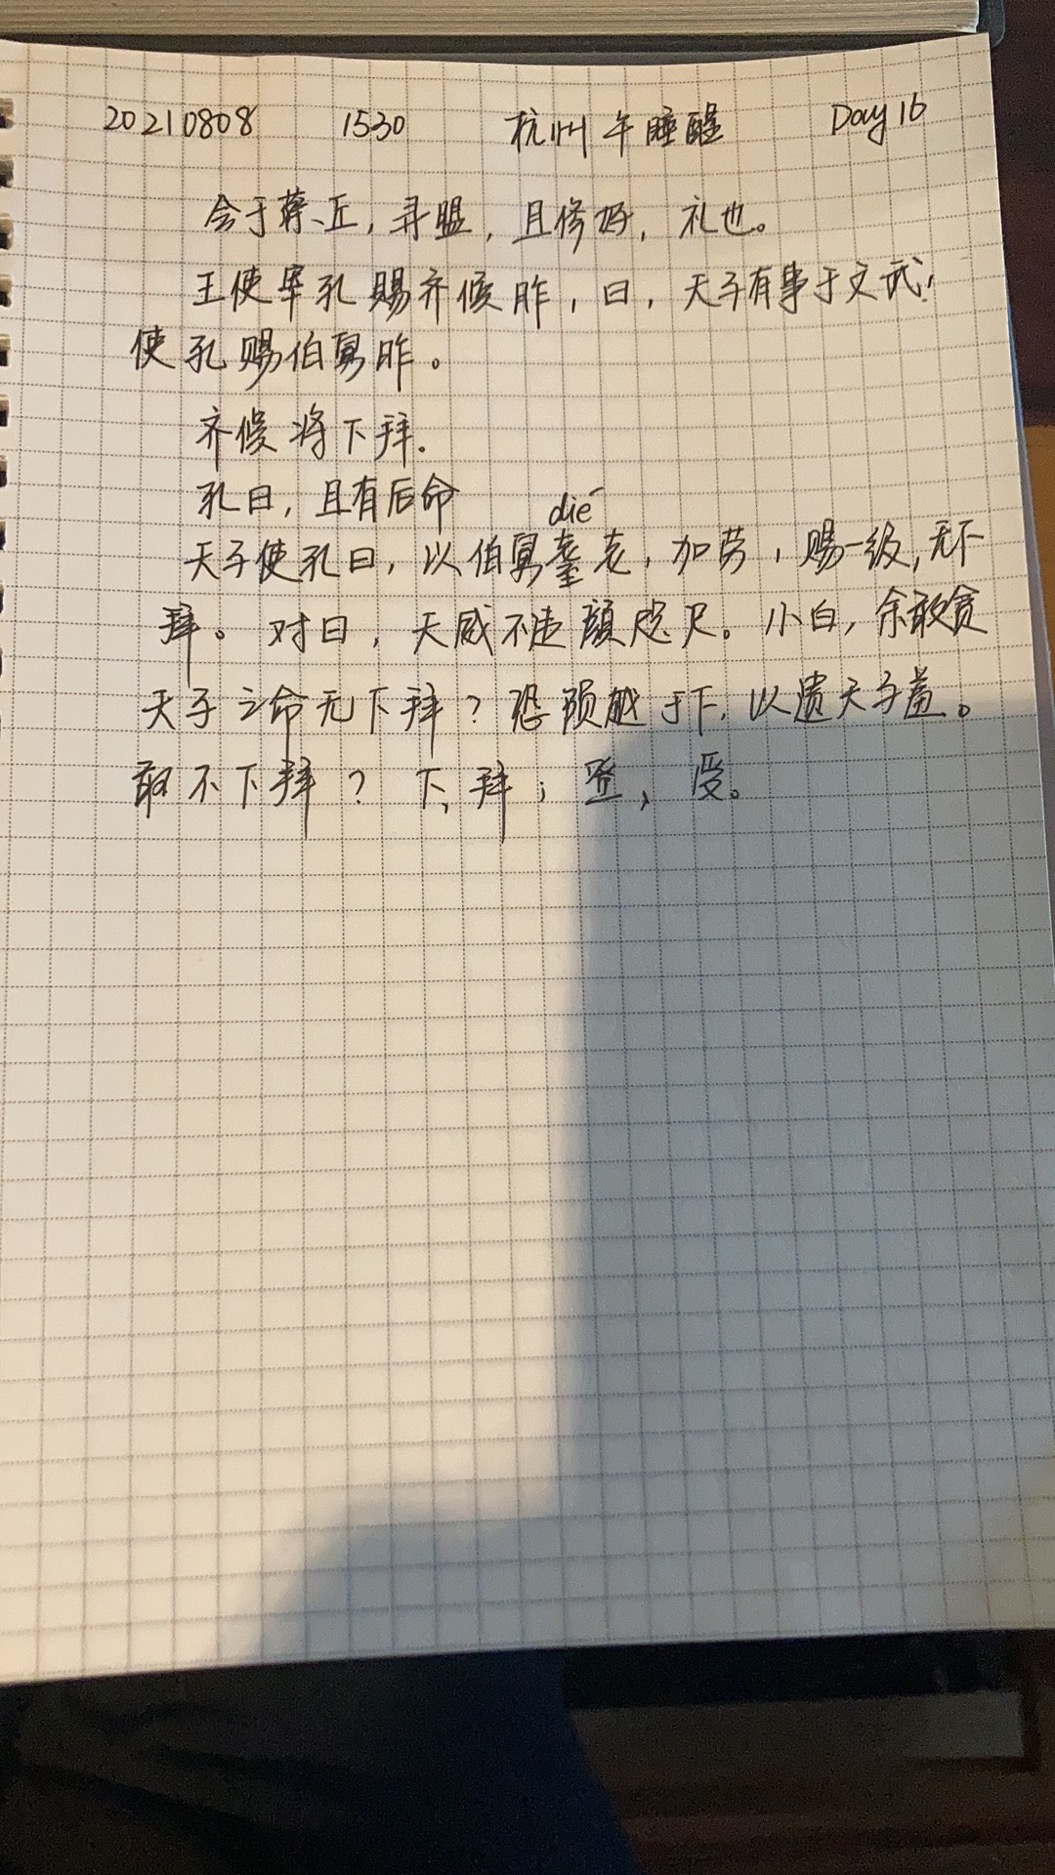 20210808 1530 杭州午睡醒 Day 16
会于葵丘,寻盟,且修好,礼也。
王使宰孔赐齐候胙,曰,天子有事于文武,
使孔赐伯舅胙。
齐候将下拜.
孔曰,且有后命
dié
天子使孔曰,以伯舅耋老,加劳,赐一级,无下
拜。对曰,天威不违颜咫尺。小白,余敢贪
天子之命无下拜?恐陨越于下,以遗天子羞。
敢不下拜?下、拜;登、受。